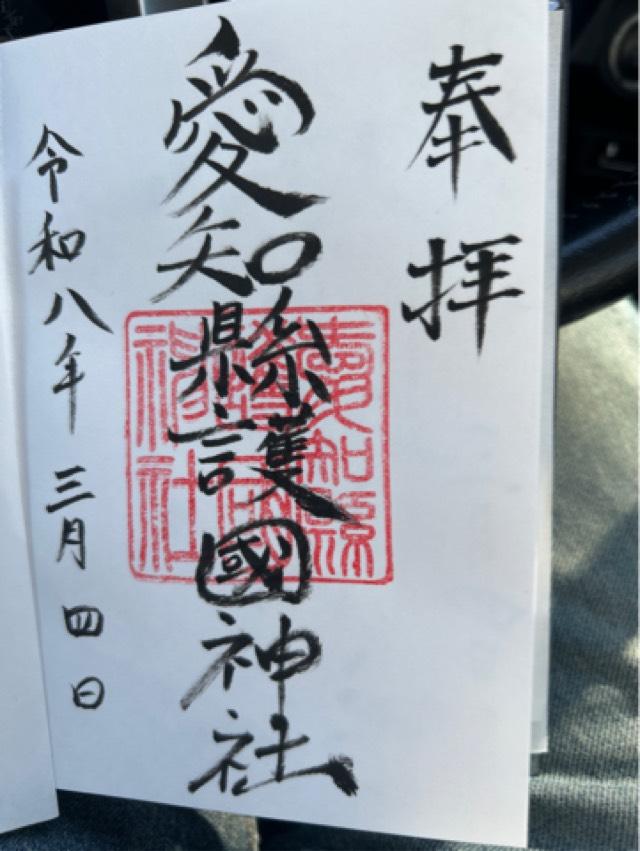 奉拝
愛知縣護國神社
愛知縣
護國
神社
令和八年三月四日